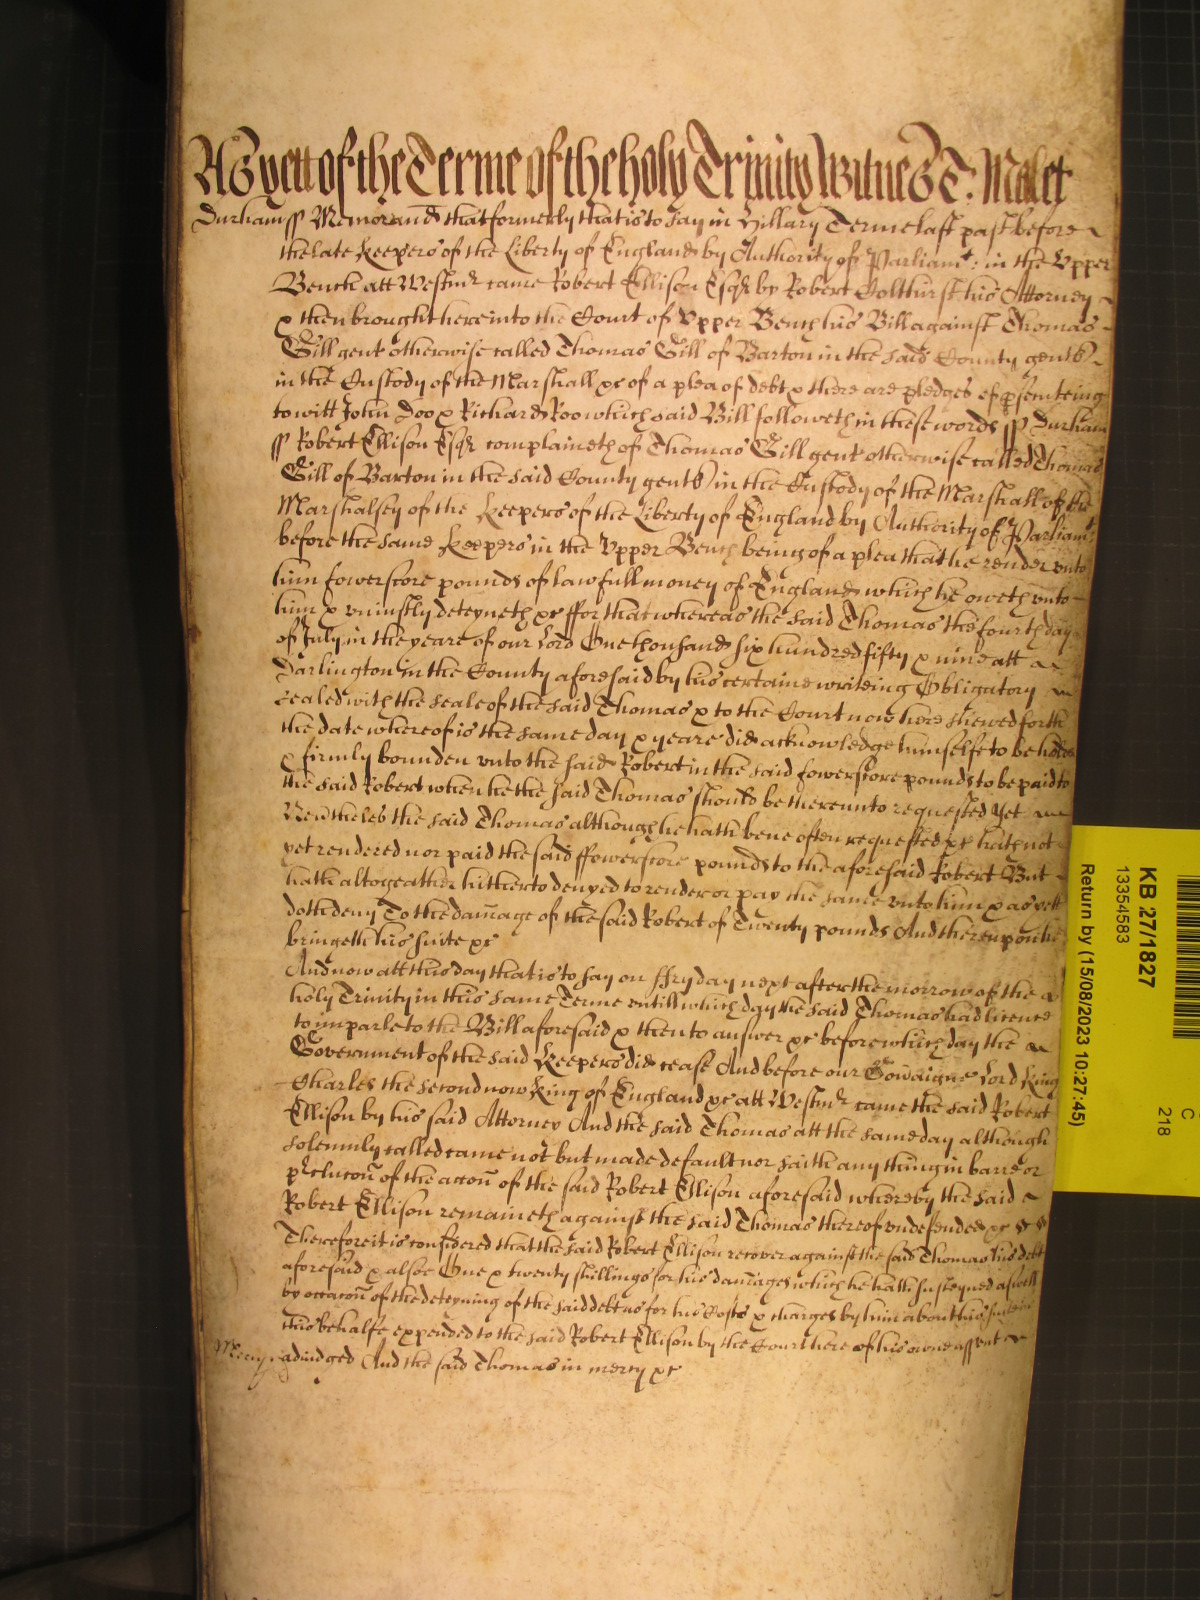 As yett of the Terme of the holy Trinity Witnes T: Malet
Durham ss Memorand that formerly that is to say in Hillary Terme last past before
the late Keepers of the Liberty of England by Authority of Parliamt: in the Vpper
Bench att Westmr came Robert Ellison Esqr by Robert Colthurst his Attorney
& then brought here into the Court of Vpper Bench his Bill against Thomas
Gill gent otherwise called Thomas Gill of Barton in the said County gent)
in the Custody of the Marshall &c of a plea of debt & there are pledges of psenteing
to witt John Doo & Richard Roo which said Bill followeth in these words ss Durham
ss Robert Ellison Esqr complaineth of Thomas Gill gent otherwise called Thomas
Gill of Barton in the said County gent) in the Custody of the Marshall of the
Marshalsey of the Keepers of the Liberty of England by Authority of Parliamt
before the same Keepers in the Vpper Bench being of a plea that he render vnto
him fowerscore pounds of lawfull money of England which he oweth vnto
him & vniustly deteyneth &c ffor that whereas the said Thomas the fourth day
of July in the yeare of our Lord One thousand six hundred fifty & nine att
Darlington in the County aforesaid by his certaine writeing Obligatory
sealed with the seale of the said Thomas & to the Court now here shewed forth
the date whereof is the same day & yeare did acknowledge himselfe to be holden
& firmly bounden vnto the said Robert in the said fowerscore pounds to be paid to
the said Robert when he the said Thomas should be therevnto requested Yet
Neutheles the said Thomas although he hath bene often requested &c hath not
yet rendered nor paid the said ffowerscore pounds to the aforesaid Robert But
hath altogeather hitherto denyed to render or pay the same vnto him & as yett
doth deny To the damage of the said Robert of Twenty pounds And therevpon he
bringeth his suite &c
And now att this day that is to say on ffryday next after the morrow of the
holy Trinity in this same Terme vntill which day the said Thomas had licence
to imparle to the Bill aforesaid & then to answer &c before which day the
Government of the said Keepers did cease And before our Sovaigne Lord King
Charles the second now King of England &c att Westmr came the said Robert
Ellison by his said Attorney And the said Thomas att the same day although
solemnly called came not but made default nor saith any thing in barre or
preclucon of the accon of the said Robert Ellison aforesaid whereby the said
Robert Ellison remaineth against the said Thomas thereof vndefended &c
Therefore it is considered that the said Robert Ellison recover against the said Thomas his debt
aforesaid & alsoe One & twenty shillings for his damages which he hath susteyned aswell
by occacon of the deteyning of the said debt as for his Costs & charges by him about his suite in
this behalfe expended to the said Robert Ellison by the Court here of his owne assent
Mercy adiudged And the said Thomas in mercy &c
KB 27/1827
13354583
Return by (15/08/2023 10:27:45)
C
218